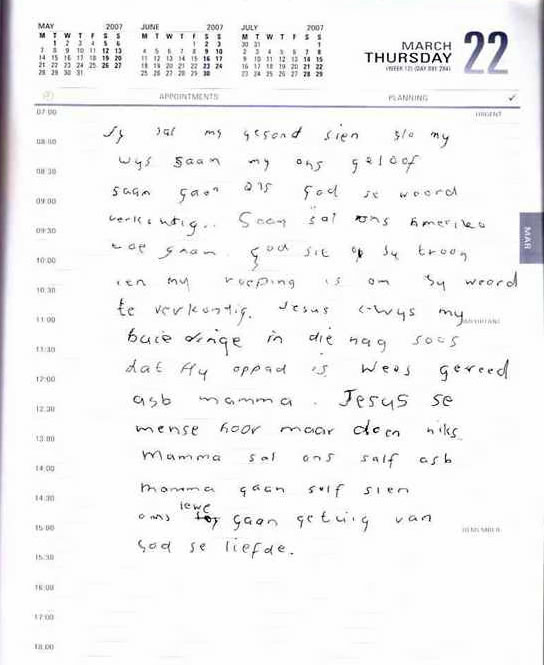 MAY 2007
M T W T F S S
1 2 3 4 5 6
7 8 9 10 11 12 13
14 15 16 17 18 19 20
21 22 23 24 25 26 27
28 29 30 31
JUNE 2007
M T W T F S S
1 2 3
4 5 6 7 8 9 10
11 12 13 14 15 16 17
18 19 20 21 22 23 24
25 26 27 28 29 30
JULY 2007
M T W T F S S
30 31 1
2 3 4 5 6 7 8
9 10 11 12 13 14 15
16 17 18 19 20 21 22
23 24 25 26 27 28 29
MARCH
THURSDAY
22
APPOINTMENTS PLANNING
URGENT
07:00
Jy sal my gesond sien my
08:00
wys saan my ons geloof
08:30
saan gaan as god se woord
09:00
verkontig.. Soan sal ons Amerika
09:30
toe gaan. god sit op sy troon
10:00
en my roeping is om sy woord
10:30
te verkontig. Jesus wys my
11:00
IMPORTANT
baie dinge in die nag soos
11:30
dat Hy oppad is wees gereed
12:00
asb mamma. Jesus se
12:30
mense hoor maar doen niks
13:00
Mamma sal ons self asb
14:00
mamma gaan self sien
14:30
ons lewe gaan getuig van
15:00
REMEMBER
God se liefde.
15:30
16:00
17:00
18:00
MAR